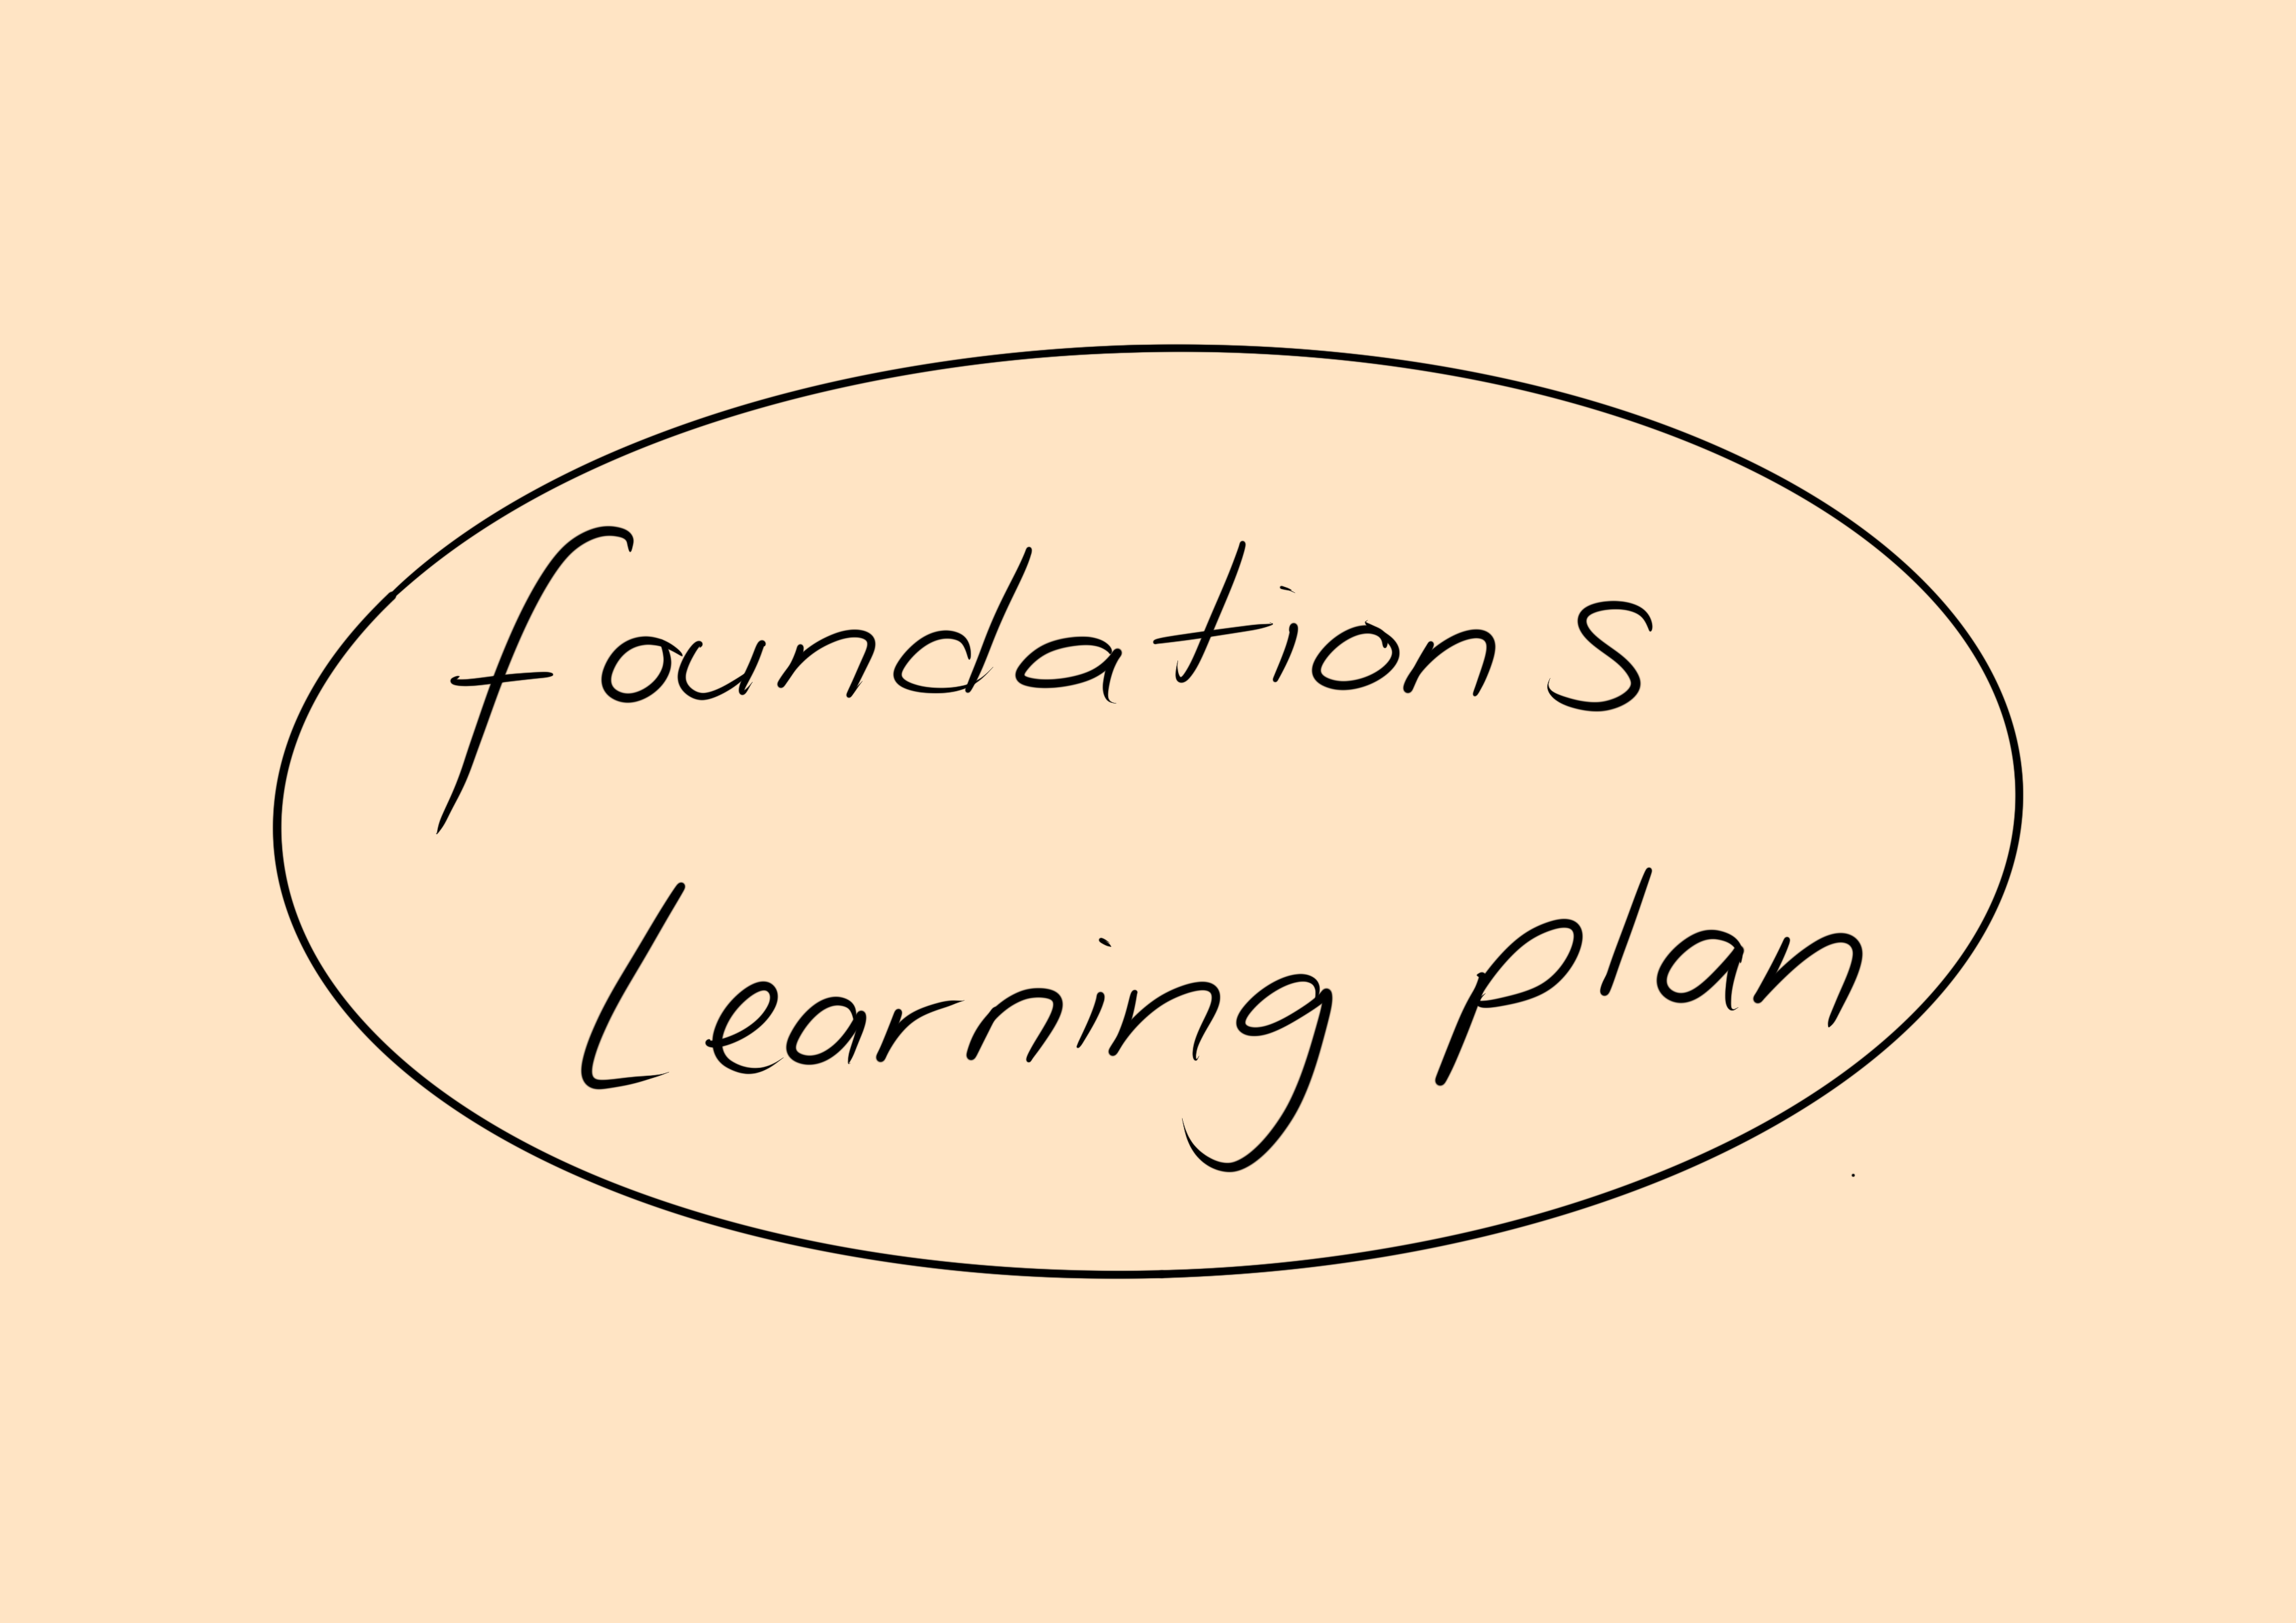 foundations
Learning plan